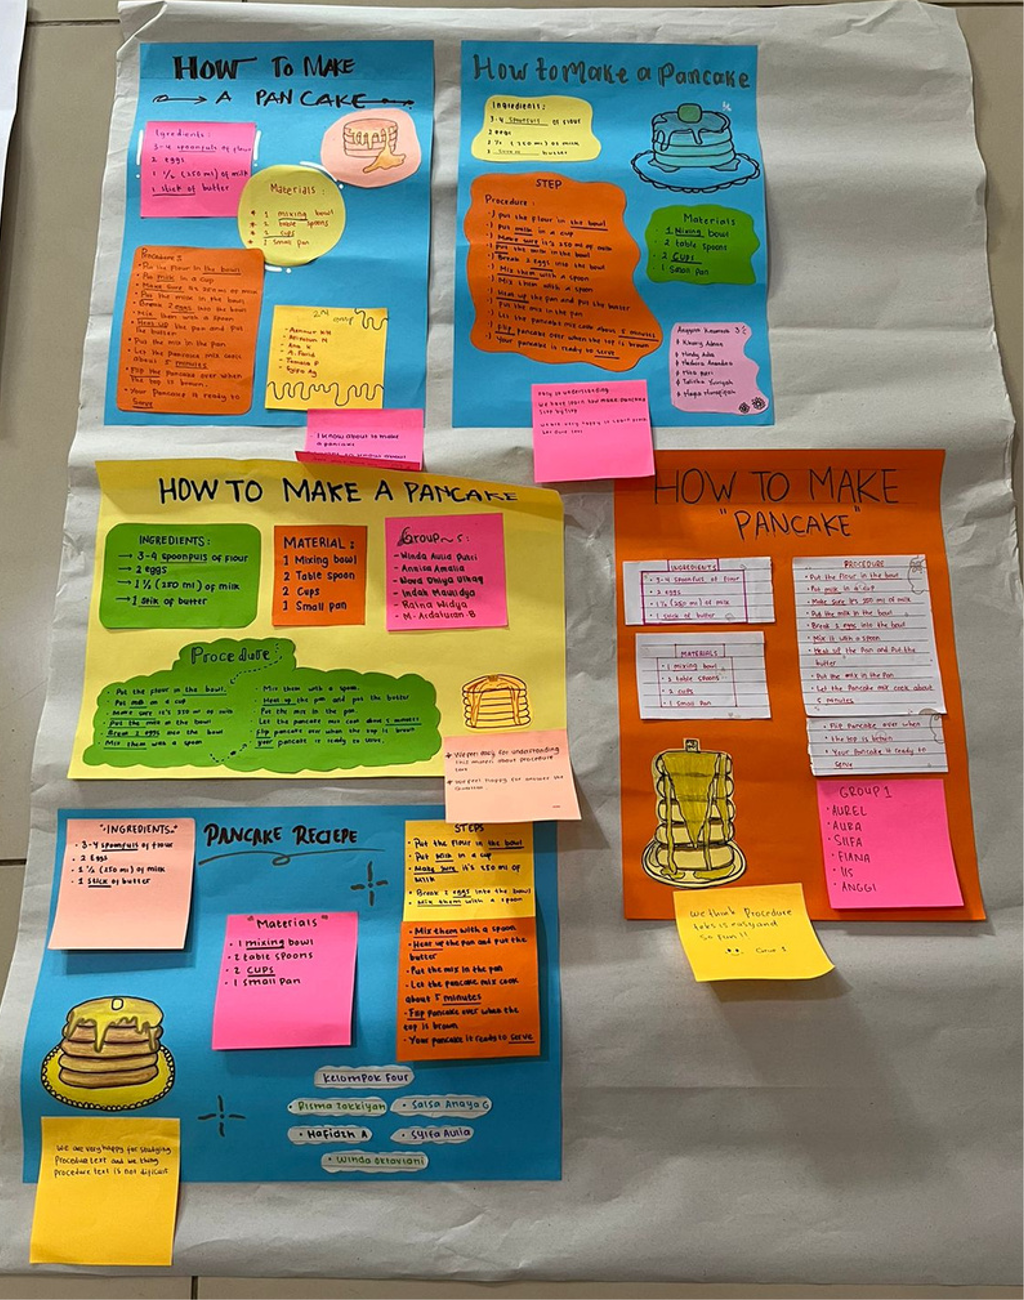 HOW TO MAKE
A PANCAKE
Igredients :
3-4 spoonfuls of flour
2 eggs
1 ½ (250 ml) of milk
1 stick of butter
Materials :
* 1 mixing bowl
* 2 table spoons
* 2 cups
* 1 small pan
Procedure :
• Put the flour in the bowl
• Put milk in a cup
• Make sure its 250 ml of milk
• Put the milk in the bowl
• Break 2 eggs into the bowl
• Mix them with a spoon
• Heat up the pan and put the butter
• Put the mix in the pan
• Let the pancake mix cook about 5 minutes
• Flip the pancake over when the top is brown.
• Your Pancake it ready to serve
• I know about to make
a pancake
How to Make a Pancake
Ingredients :
3-4 spoonfuls of flour
2 eggs
1 ½ (250 ml) of milk
1 butter
STEP
Procedure :
•) Put the flour in the bowl
•) Put milk in a cup
•) Make sure it's 250 ml of milk
•) Put the milk in the bowl
•) Break 2 eggs into the bowl
•) Mix them with a spoon
•) Mix them with a spoon
•) Heat up the pan and put the butter
•) Put the mix in the pan
•) Let the pancake mix cook about 5 minutes
•) Flip pancake over when the top is brown
•) Your pancake is ready to serve
Materials
• 1 Mixing bowl
• 2 table spoons
• 2 Cups
• 1 Small pan
Easy to understanding
we have learn how make pancake
step by step
HOW TO MAKE A PANCAKE
INGREDIENTS :
→ 3-4 spoonfuls of flour
→ 2 eggs
→ 1 ½ (250 ml) of milk
→ 1 stik of butter
MATERIAL :
1 Mixing bowl
2 Table spoon
2 Cups
1 Small pan
Group 5 :
- Winda Aulia Putri
- Annisa Amalia
- Indah Maulidya
- Ratna Widya
- M. Ardalusan. B
Procedure
• Put the flour in the bowl.
• Put milk on a cup
• Make sure it's 250 ml of milk
• Put the milk in the bowl
• Break 2 eggs into the bowl
• Mix them with a spoon
• Mix them with a spoon.
• Heat up the pan and put the butter
• Put the mix in the pan.
• Let the pancake mix cook about 5 minutes
• Flip pancake over when the top is brown
• Your pancake is ready to serve.
* We feel easy for understanding
this materi about procedure
text
* We feel happy for answer the
Question.
HOW TO MAKE
"PANCAKE"
INGREDIENTS
• 3-4 spoonfuls of flour
• 2 eggs
• 1 ½ (250 ml) of milk
• 1 stick of butter
MATERIALS
• 1 mixing bowl
• 2 table spoons
• 2 cups
• 1 Small pan
PROCEDURE
• Put the flour in the bowl
• Put milk in a cup
• Make sure it's 250 ml of milk
• Put the milk in the bowl
• Break 2 eggs into the bowl
• Mix it with a spoon
• Heat up the Pan and Put the
butter
• Put the mix in the Pan
• Let the Pancake mix cook about
5 minutes
• Flip Pancake over when
the top is brown
• Your Pancake it ready to
serve
GROUP 1
• AUREL
• AURA
• SIIFA
• FIANA
• IIS
• ANGGI
We think Procedure
teks is easy and
so fun !!
PANCAKE RECIEPE
"INGREDIENTS"
• 3-4 spoonfull of flour
• 2 Eggs
• 1 ½ (250 ml) of milk
• 1 Stick of butter
"Materials"
• 1 mixing bowl
• 2 table spoons
• 2 cups
• 1 small pan
STEPS
• Put the flour in the bowl
• Put milk in a cup
• Make sure it's 250 ml of
milk
• Break 2 eggs into the bowl
• Mix them with a spoon
• Mix them with a spoon
• Heat up the pan and put the
butter
• Put the mix in the pan
• Let the pancake mix cook
about 5 minutes
• Flip pancake over when the
top is brown
• Your pancake it ready to serve
Kelompok Four
• Risma Zakkiyah
• Salsa Anaya G
• Hafidzh A
• Sylfa Aulia
• Winda Oktaviani
We are very happy for studying
procedure text and we thing
procedure text is not dificult